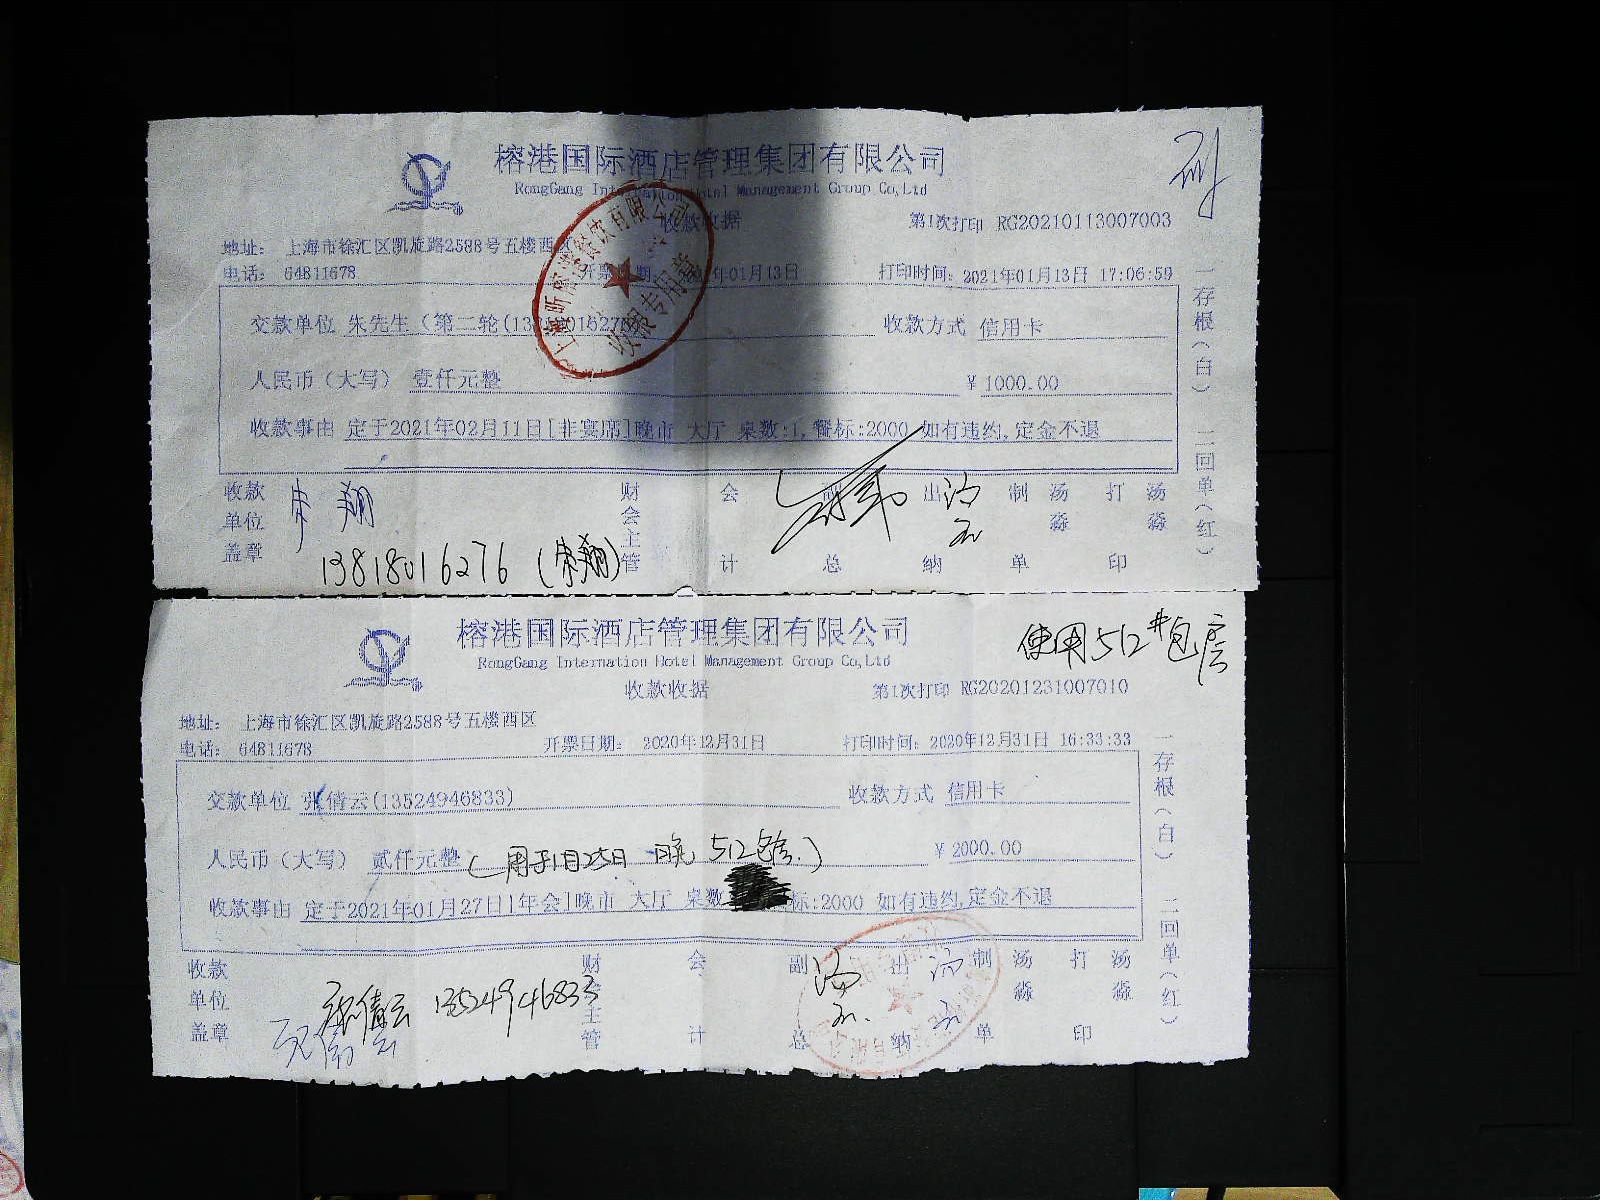 榕港国际酒店管理集团有限公司
RongGang International Hotel Management Group Co,Ltd
收款收据 第1次打印 RG20210113007003
地址： 上海市徐汇区凯旋路2588号五楼西区
电话： 64811678 开票日期： 年01月13日 打印时间：2021年01月13日 17:06:59
交款单位 朱先生（第二轮(13 收款方式 信用卡
人民币（大写） 壹仟元整 ¥ 1000.00
收款事由 定于2021年02月11日[非宴席]晚市 大厅 桌数:1,餐标:2000 如有违约,定金不退
一存根（白） 二回单（红）
收款单位盖章 财会主管 会计 副总 出纳 制单 汤淼 打印 汤淼
收款专用章
13818016276 (朱翔)
榕港国际酒店管理集团有限公司
RongGang Internation Hotel Management Group Co,Ltd
使用512#包房
收款收据 第1次打印 RG20201231007010
地址： 上海市徐汇区凯旋路2588号五楼西区
电话： 64811678 开票日期： 2020年12月31日 打印时间：2020年12月31日 16:33:33
交款单位 张倩云(13524946833) 收款方式 信用卡
人民币（大写） 贰仟元整 (用于1月25日 晚 512包房.) ¥ 2000.00
收款事由 定于2021年01月27日[年会]晚市 大厅 桌数 标:2000 如有违约,定金不退
一存根（白） 二回单（红）
收款单位盖章 财会主管 会计 副总 出纳 制单 汤淼 打印 汤淼
13524946833